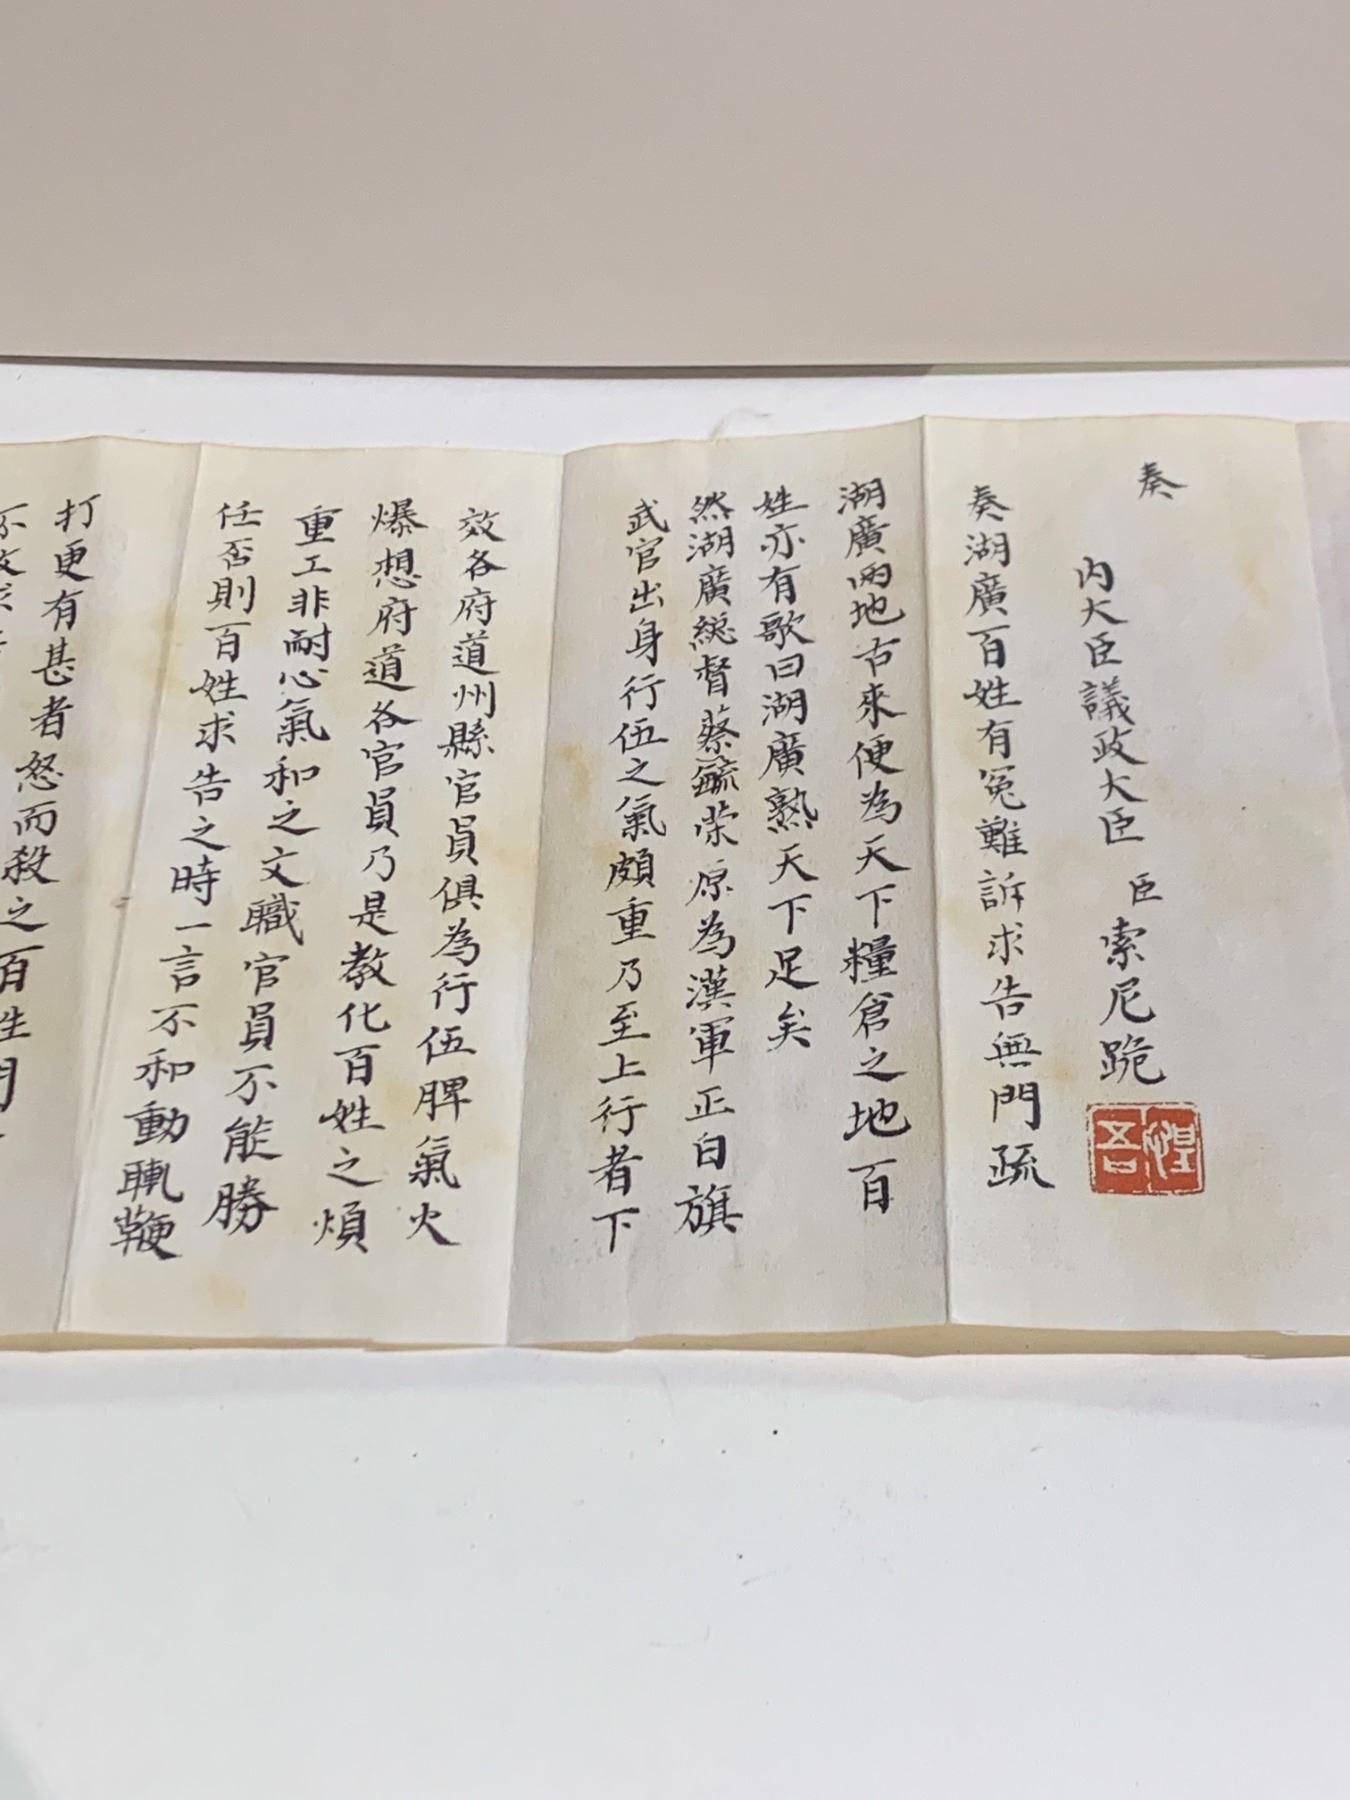 奏
內大臣議政大臣 臣 索尼跪
奏湖廣百姓有冤難訴求告無門疏
湖廣兩地古來便為天下糧倉之地百
姓亦有歌曰湖廣熟天下足矣
然湖廣總督蔡毓榮原為漢軍正白旗
武官出身行伍之氣頗重乃至上行者下
效各府道州縣官員俱為行伍脾氣火
爆想府道各官員乃是教化百姓之煩
重工非耐心氣和之文職官員不能勝
任否則百姓求告之時一言不和動輒鞭
打更有甚者怒而殺之百姓門